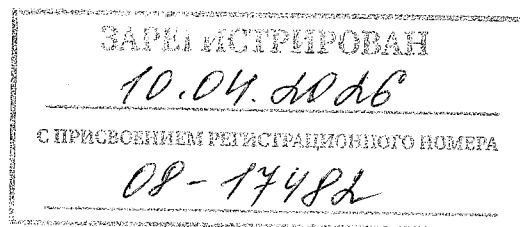 ЗАРЕГИСТРИРОВАН
10.04.2026
С ПРИСВОЕНИЕМ РЕГИСТРАЦИОННОГО НОМЕРА
08-17482